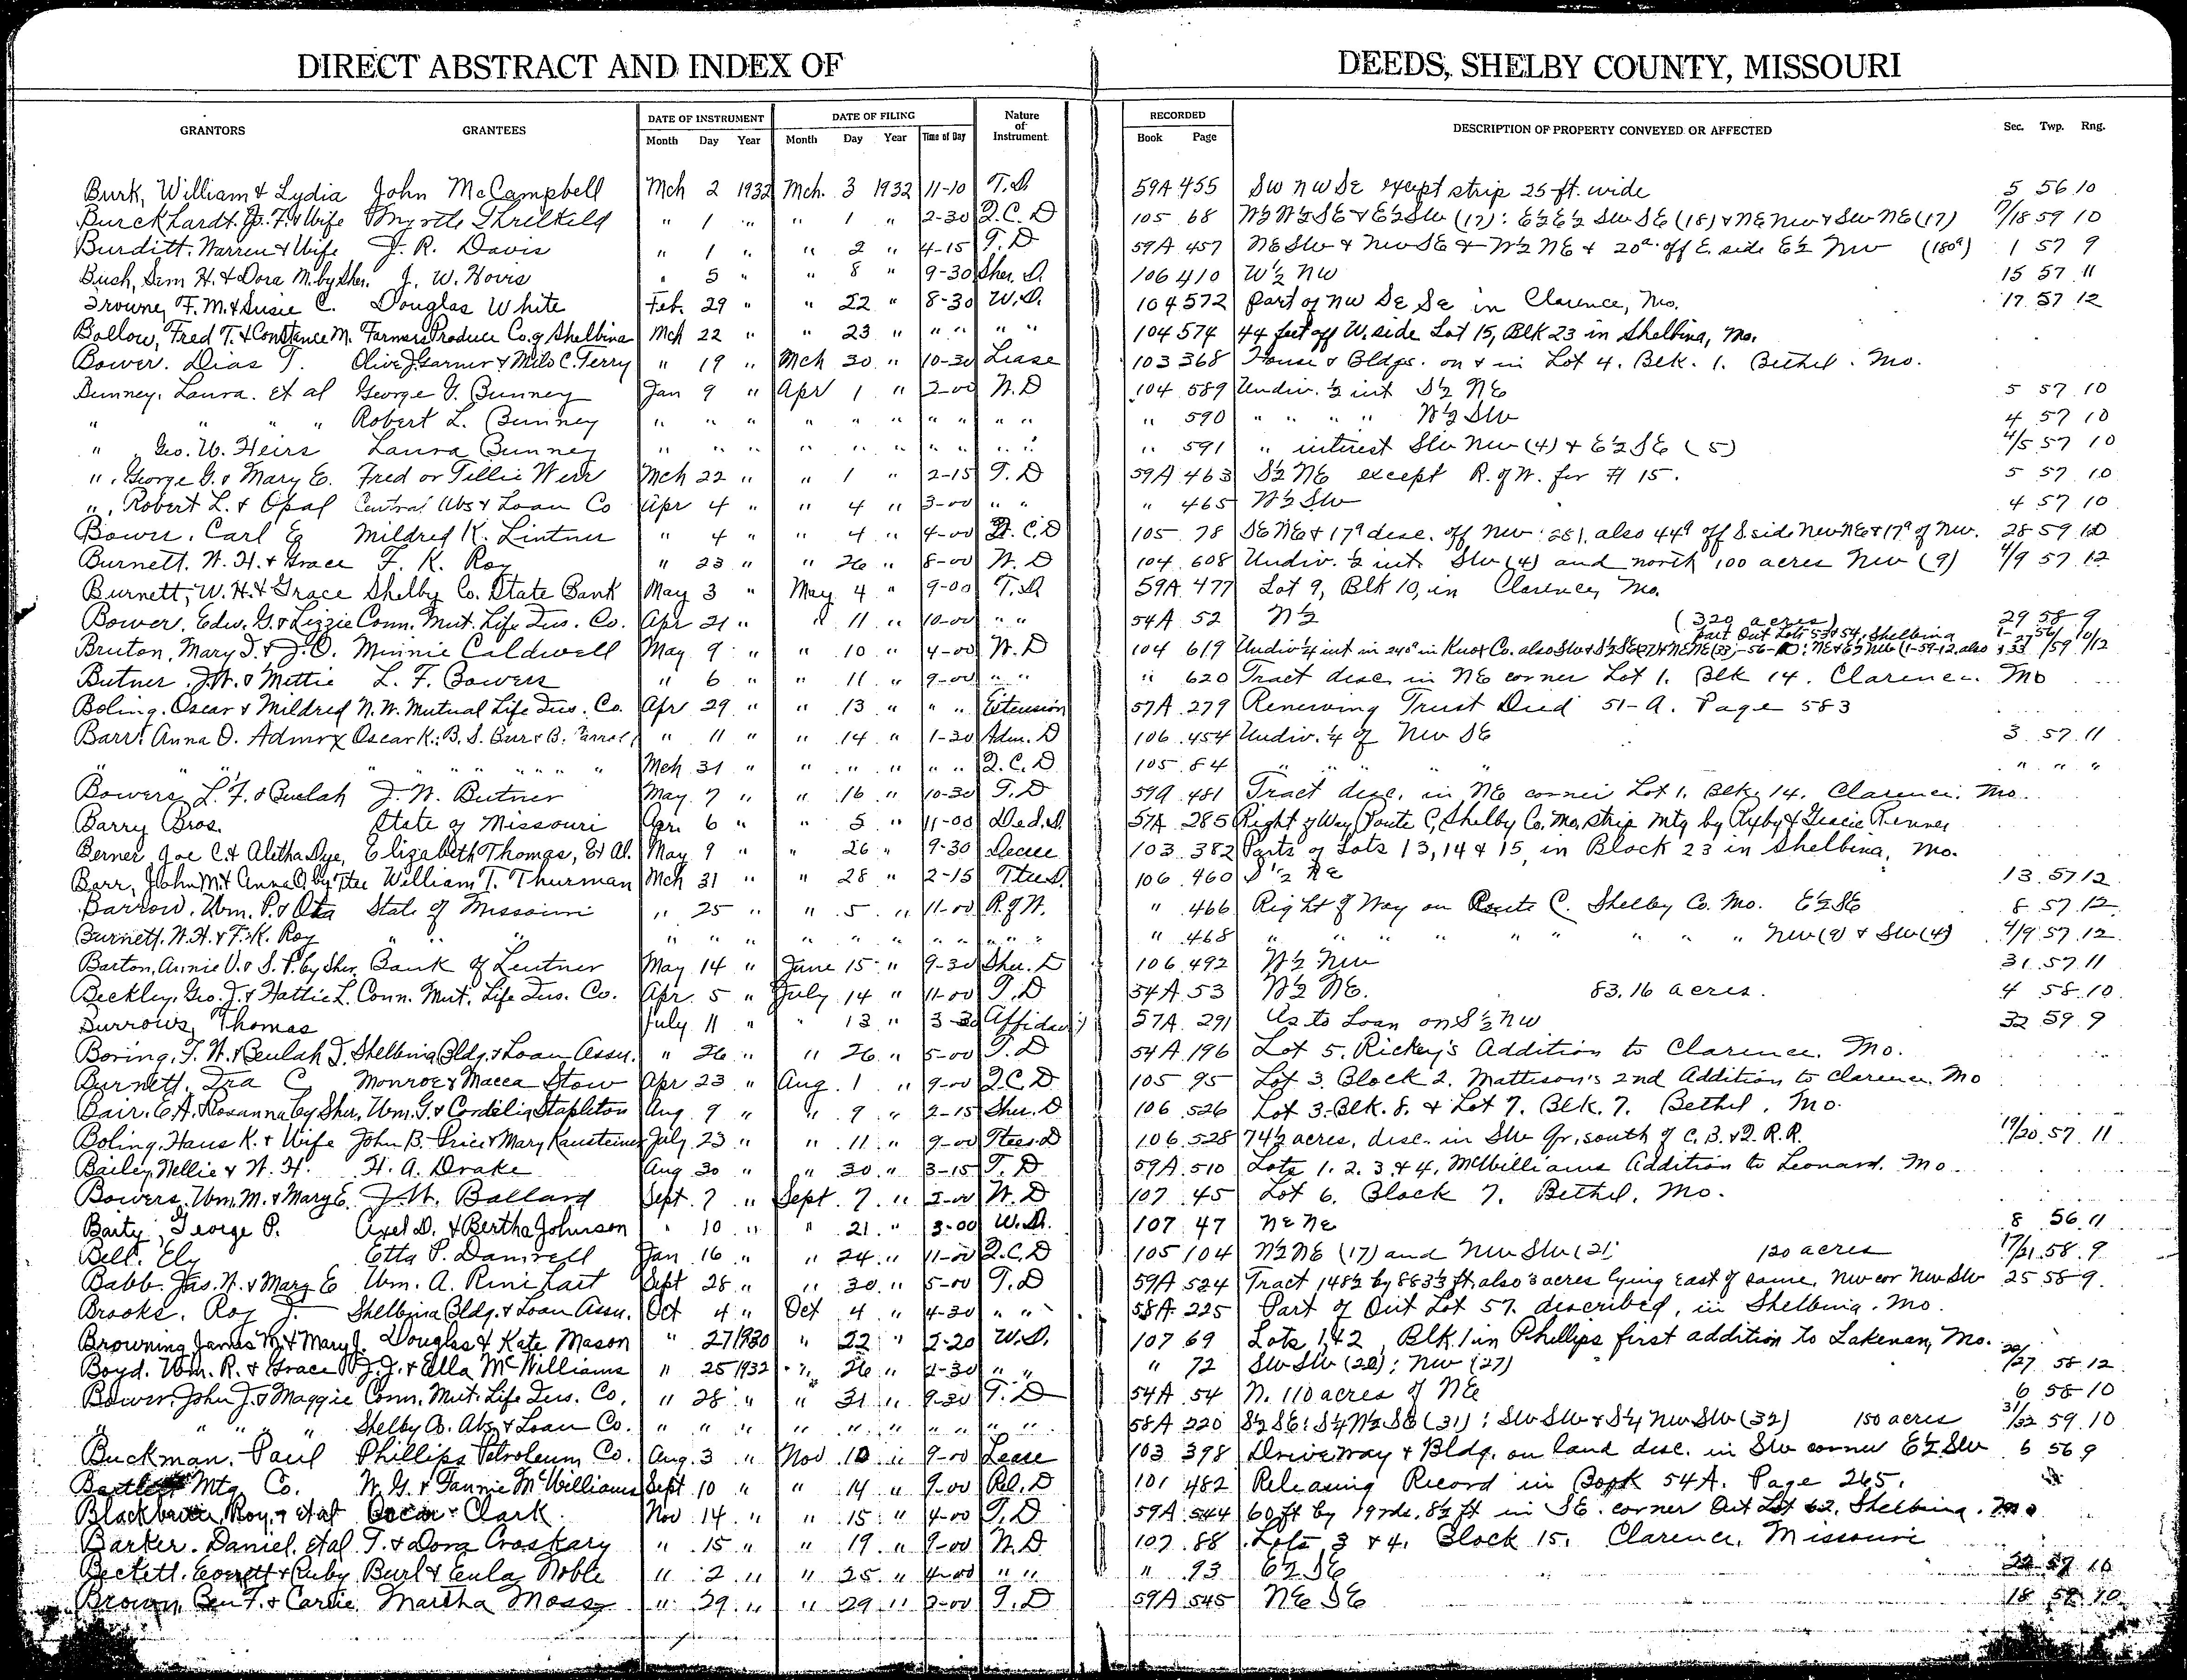 DIRECT ABSTRACT AND INDEX OF DEEDS, SHELBY COUNTY, MISSOURI
GRANTORS GRANTEES DATE OF INSTRUMENT Month Day Year DATE OF FILING Month Day Year Time of Day Nature of Instrument RECORDED Book Page DESCRIPTION OF PROPERTY CONVEYED OR AFFECTED Sec. Twp. Rng.
Burk, William & Lydia John McCampbell Mch 2 1932 Mch. 3 1932 11-10 T.D. 59A 455 SW NW SE except strip 25 ft. wide 5 56 10
Burckhardt. Jo. F. & Wife Myrtle Threlkeld " 1 " " 1 " 2-30 Q.C.D 105 68 W½ W½ SE & E½ SW (17): E½ E½ SW SE (18) & NE NW & SW NE (17) 17/18 59 10
Burditt. Warren & Wife J. R. Davis " 1 " " 2 " 4-15 T.D 59A 457 NE SW & NW SE & W½ NE & 20a. off E. side E½ NW (180a) 1 57 9
Bush, Sem H. & Dora M. by Sher. J. W. Hovis " 5 " " 8 " 9-30 Sher. D. 106 410 W½ NW 15 57 11
Browne, F. M. & Susie C. Douglas White Feb. 29 " " 22 " 8-30 W.D. 104 572 part of NW SE SE in Clarence, Mo. 17 57 12
Bollow, Fred T. & Constance M. Farmers Produce Co. of Shelbina Mch 22 " " 23 " " " " " 104 574 44 feet off W. side Lot 15, Blk 23 in Shelbina, Mo.
Bower. Dias T. Olive J. Garner & Milo C. Terry " 19 " Mch 30 " 10-30 Lease 103 368 House & Bldgs. on & in Lot 4. Blk. 1. Bethel. Mo.
Bunney. Laura. et al George G. Bunney Jan 9 " Apr 1 " 2-00 W.D 104 589 Undiv. ½ int S½ NE 5 57 10
" " " Robert L. Bunney " " " " " " " " " " " 590 " " " " W½ SW 4 57 10
" Geo. W. Heirs Laura Bunney " " " " " " " " " " " 591 " interest SW NW (4) & E½ SE (5) 4/5 57 10
", George G. & Mary E. Fred or Tillie Werr Mch 22 " " 1 " 2-15 T.D 59A 463 S½ NE except R. of W. for # 15. 5 57 10
", Robert L. & Opal Central Abs & Loan Co Apr 4 " " 4 " 3-00 " " " 465 W½ SW 4 57 10
Bower. Carl E Mildred K. Lintner " 4 " " 4 " 4-00 Q.C.D 105 78 SE NE & 17a desc. off NW: 28, also 44a off S. side NW NE & 17a of NW. 28 59 10
Burnett. W. H. & Grace F. K. Roy " 23 " " 26 " 8-00 W.D 104 608 Undiv. ½ int. SW (4) and north 100 acres NW (9) 4/9 57 12
Burnett, W. H. & Grace Shelby Co. State Bank May 3 " May 4 " 9-00 T.D. 59A 477 Lot 9, Blk 10, in Clarence, Mo.
Bower. Edw. G. & Lizzie Conn. Mut. Life Ins. Co. Apr 21 " " 11 " 10-00 " " 54A 52 N½ (320 acres) 29 58 9
Bruton, Mary I. & J. O. Minnie Caldwell May 9 " " 10 " 4-00 W.D 104 619 Undiv ¼ int in 240a in Knox Co. also part Out Lots 53 & 54, Shelbina
Butner. J. W. & Mettie L. F. Bowers " 6 " " 11 " 9-00 " " " 620 Tract desc. in NE corner Lot 1. Blk 14. Clarence. Mo
Boling. Oscar & Mildred N. W. Mutual Life Ins. Co. Apr 29 " " 13 " " " Extension 57A 279 Renewing Trust Deed 51-A. Page 583
Barr. Anna O. Admrx Oscar K.; B. S. Burr & B. " 11 " " 14 " 1-30 Adm. D 106 454 Undiv. ¼ of NW SE 3 57 11
" " " " " " " " " " Mch 31 " " " " " " Q.C.D 105 84 " " " " " " " "
Bowers L. F. & Beulah J. W. Butner May 7 " " 16 " 10-30 T.D 59A 481 Tract desc. in NE corner Lot 1. Blk. 14. Clarence. Mo.
Barry Bros. State of Missouri Apr. 6 " " 5 " 11-00 Ded. D. 57A 285 Right of Way, Route C, Shelby Co. Mo. strip mtg by Renner
Berner, Joe C. & Alitha Dye, Elizabeth Thomas, Et Al. May 9 " " 26 " 9-30 Decree 103 382 Parts of Lots 13, 14 & 15, in Block 23 in Shelbina, Mo.
Barr, John M. & Anna O. by Ttee William T. Thurman Mch 31 " " 28 " 2-15 Ttee D. 106 460 S½ NE 13 57 12
Barrow. Wm. P. & Ota State of Missouri " 25 " " 5 " 11-00 R. of W. " 466 Right of Way on Route C. Shelby Co. Mo. E½ SE 8 57 12
Burnett. W. H. & F. K. Roy " " " " " " " " " " " " " " " 468 " " " " " " " " NW (9) & SW (4) 4/9 57 12
Barton, Annie V. & S. P. by Sher. Bank of Lentner May 14 " June 15 " 9-30 Sher. D 106 492 W½ NW 31 57 11
Beckley. Geo. J. & Hattie L. Conn. Mut. Life Ins. Co. Apr. 5 " July 14 " 11-00 T.D 54A 53 W½ NE. 83.16 acres. 4 58 10
Burrows, Thomas July 11 " " 13 " 3-30 Affidavit 57A 291 As to Loan on S½ NW 32 59 9
Boring, T. W. & Beulah I. Shelbina Bldg. & Loan Assn. " 26 " " 26 " 5-00 T.D 54A 196 Lot 5. Rickey's Addition to Clarence. Mo.
Burnett. Ira C Monroe & Macca Stow Apr 23 " Aug. 1 " 9-00 Q.C.D 105 95 Lot 3. Block 2. Mattison's 2nd Addition to Clarence. Mo
Bair. E. A. & Rosanna by Sher. Wm. G. & Cordelia Stapleton Aug 9 " " 9 " 2-15 Sher. D 106 526 Lot 3-Blk. 8. & Lot 7. Blk. 7. Bethel. Mo.
Boling, Hans K. & Wife John B. Price & Mary Kausteiner July 23 " " 11 " 9-00 Ttees. D 106 528 74½ acres, desc. in SW Qr. south of C. B. & Q. R. R. 19/20 57 11
Bailey, Nellie & W. H. H. A. Drake Aug 30 " " 30 " 3-15 T.D 59A 510 Lots 1. 2. 3 & 4, McWilliams Addition to Leonard. Mo.
Bowers, Wm. M. & Mary E. J. W. Ballard Sept. 7 " Sept. 7 " 2-00 W.D 107 45 Lot 6. Block 7. Bethel. Mo.
Baity, George P. Axel D. & Bertha Johnson " 10 " " 21 " 3-00 W.D. 107 47 NE NE 8 56 11
Bell. Ely Etta P. Damrell Jan 16 " " 24 " 11-00 Q.C.D 105 104 N½ NE (17) and NW SW (21) 120 acres 17/21 58 9
Babb. Jas. N. & Mary E Wm. A. Rinehart Sept 28 " " 30 " 5-00 T.D 59A 524 Tract 148½ by 883½ ft, also 3 acres lying East of same. NW cor NW SW 25 58 9
Brooks. Roy J. Shelbina Bldg. & Loan Assn. Oct 4 " Oct 4 " 4-30 " " 58A 225 Part of Out Lot 57. described, in Shelbina. Mo.
Browning James M. & Mary J. Douglas & Kate Mason " 27 1930 " 22 " 2-20 W.D. 107 69 Lots 1 & 2, Blk. 1 in Phillips first addition to Lakenan, Mo.
Boyd. Wm. R. & Grace J. J. & Ella McWilliams " 25 1932 " 26 " 1-30 " " " 72 SW SW (22); NW (27) 22/27 58 12
Bower. John J. & Maggie Conn. Mut. Life Ins. Co. " 28 " " 31 " 9-30 T.D 54A 54 N. 110 acres of NE 6 58 10
" " " " Shelby Co. Abs. & Loan Co. " " " " " " " " " " 58A 220 S½ SE: S¼ N½ SE (31): SW SW & S¼ NW SW (32) 150 acres 31/32 59 10
Buckman. Paul Phillips Petroleum Co. Aug. 3 " Nov 10 " 9-00 Lease 103 398 Driveway & Bldg. on land desc. in SW corner E½ SW 6 56 9
Bartlett Mtg Co. W. G. & Fannie McWilliams Sept 10 " " 14 " 9-00 Rel. D 101 482 Releasing Record in Book 54A. Page 265.
Roy & et al Oscar Clark Nov 14 " " 15 " 4-00 T.D 59A 544 60 ft by 19 rds. 8½ ft in SE. corner Out Lot 62. Shelbina. Mo
Barker. Daniel. et al T. & Dora Croskary " 15 " " 19 " 9-00 W.D 107 88 Lots 3 & 4. Block 15. Clarence. Missouri
Beckett. Everett & Ruby Burl & Eula Noble " 2 " " 25 " 4-00 " " " 93 E½ SE 22 57 10
Brown, Ben F. & Carrie Martha Moss " 29 " " 29 " 2-00 T.D 59A 545 NE SE 18 59 10